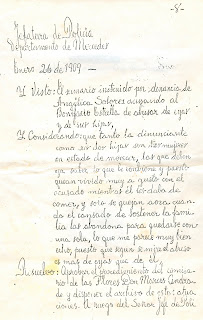 -8-
Jefatura de Policia
Departamento de Mercedes
Enero 26 de 1909.-
Visto: El sumario instruido por denuncia de
Angelica Dolores acusando al
Bonifacio Estrella de abusar de ella
y de sus hijas,
Considerando: que tanto la denunciante
como sus hijas son mujeres
en estado de merecer, las que deben
saber lo que les conviene y puesto
que han vivido muy a gusto con el
acusado mientras él les daba de
comer, y solo se quejan ahora cuan-
do el cansado de sostener la fami-
lia las abandona para quedarse con
una sola, lo que me parece muy bien
hecho, puesto que según se mire el abuso
es mas de ellas que de él,
Resuelvo: Aprobar el procedimiento del comisa-
rio de las Flores Don Marcos
y disponer el archivo de estas actua-
ciones. A ruego del Señor Jefe de Poli